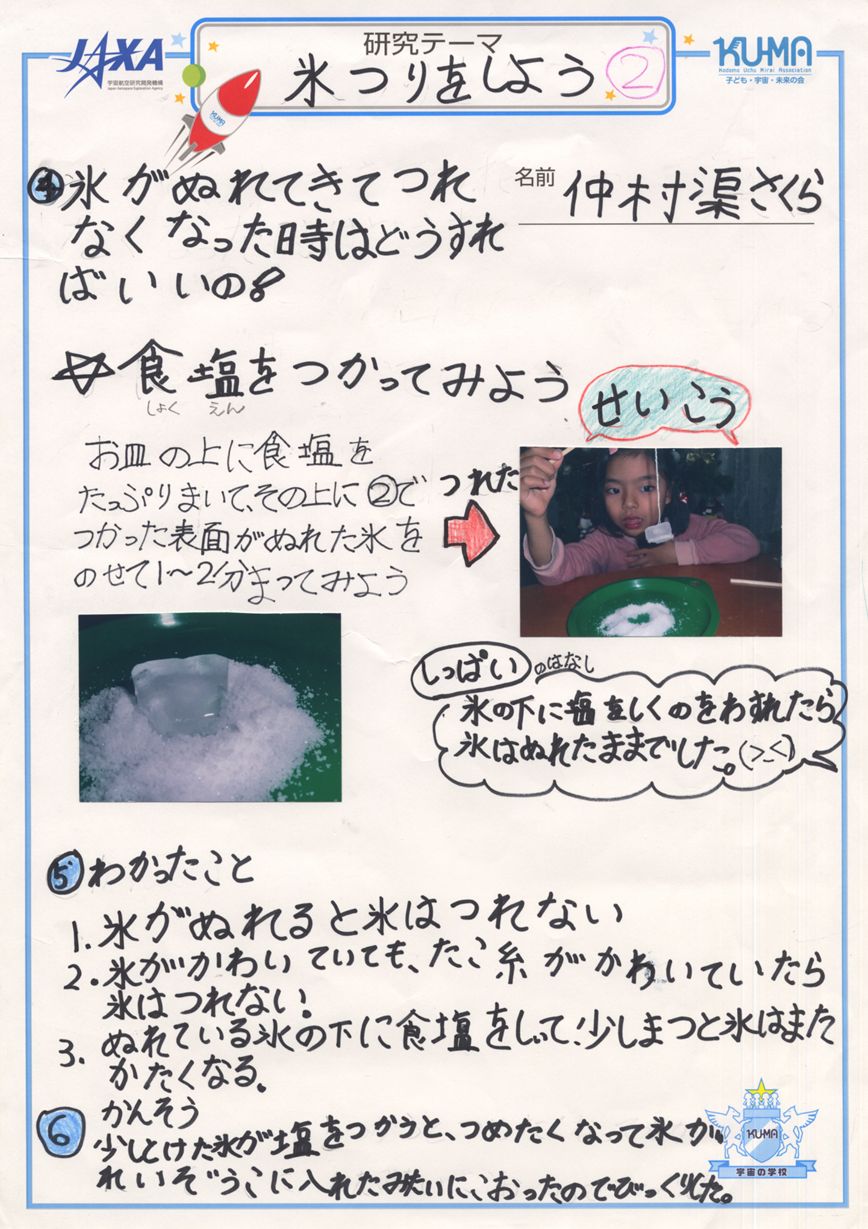 JAXA
宇宙航空研究開発機構
Japan Aerospace Exploration Agency
研究テーマ
氷つりをしよう②
KU-MA
Kodomo Uchu Mirai Association
子ども・宇宙・未来の会
KU-MA
名前 仲村渠さくら
④氷がぬれてきてつれ
なくなった時はどうすれ
ばいいの?
☆食塩をつかってみよう
しょく えん
せいこう
お皿の上に食塩を
たっぷりまいて、その上に②で
つかった表面がぬれた氷を
のせて1〜2分まってみよう
つれた
しっぱいのはなし
氷の下に塩をしくのをわすれたら
氷はぬれたままでした。(>_<)
⑤わかったこと
1.氷がぬれると氷はつれない
2.氷がかわいていても、たこ糸がかわいていたら
氷はつれない!
3.ぬれている氷の下に食塩をしいて!少しまつと氷はまた
かたくなる。
⑥かんそう
少しとけた氷が塩をつかうと、つめたくなって氷が
れいぞうこに入れたみたいにこおったのでびっくりした。
KU-MA
宇宙の学校